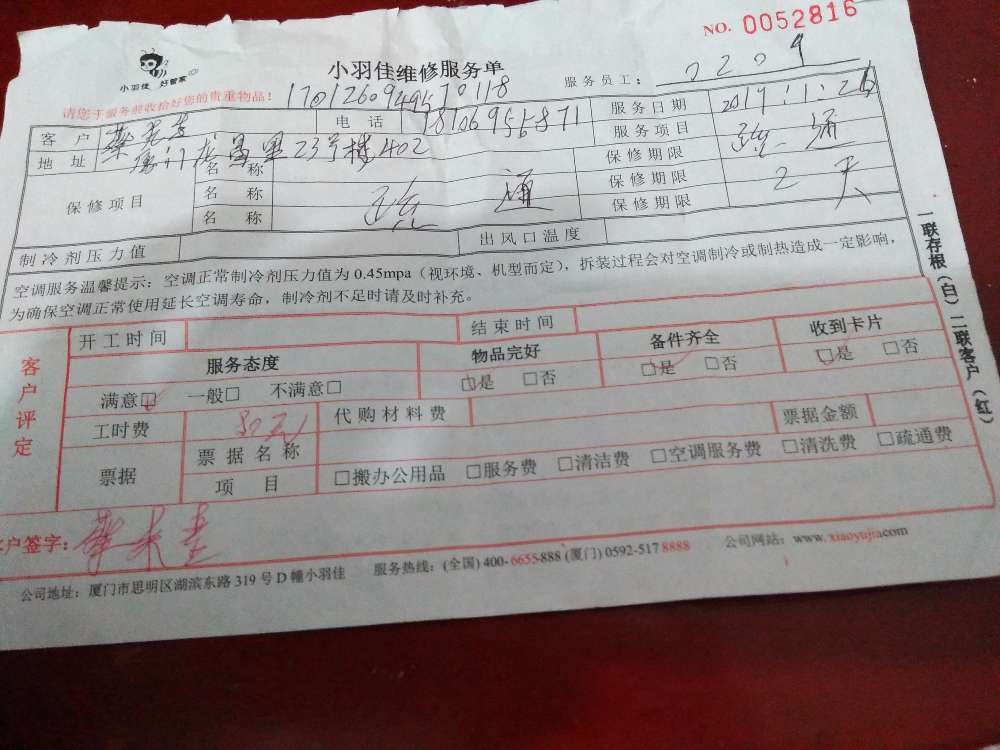 NO. 0052816
小羽佳 好管家
小羽佳维修服务单
服务员工: 0209
请您于服务前收拾好您的贵重物品!
客户 电话 18106955871 服务日期 2017.1.26
地址 厦门龙昌里23号楼402 服务项目 疏通
保修项目 名称 保修期限
名称 疏通 保修期限 2天
名称 保修期限
制冷剂压力值 出风口温度
空调服务温馨提示:空调正常制冷剂压力值为0.45mpa(视环境、机型而定),拆装过程会对空调制冷或制热造成一定影响,
为确保空调正常使用延长空调寿命,制冷剂不足时请及时补充。
一联存根(白)二联客户(红)
客户评定
开工时间 结束时间
服务态度 物品完好 备件齐全 收到卡片
满意□ 一般□ 不满意□ □是 □否 □是 □否 □是 □否
工时费 80元 代购材料费 票据金额
票据 票据名称
项目 □搬办公用品 □服务费 □清洁费 □空调服务费 □清洗费 □疏通费
客户签字:
公司地址:厦门市思明区湖滨东路319号D幢小羽佳 服务热线:(全国)400-6655-888(厦门)0592-5178888 公司网站:www.xiaoyujia.com